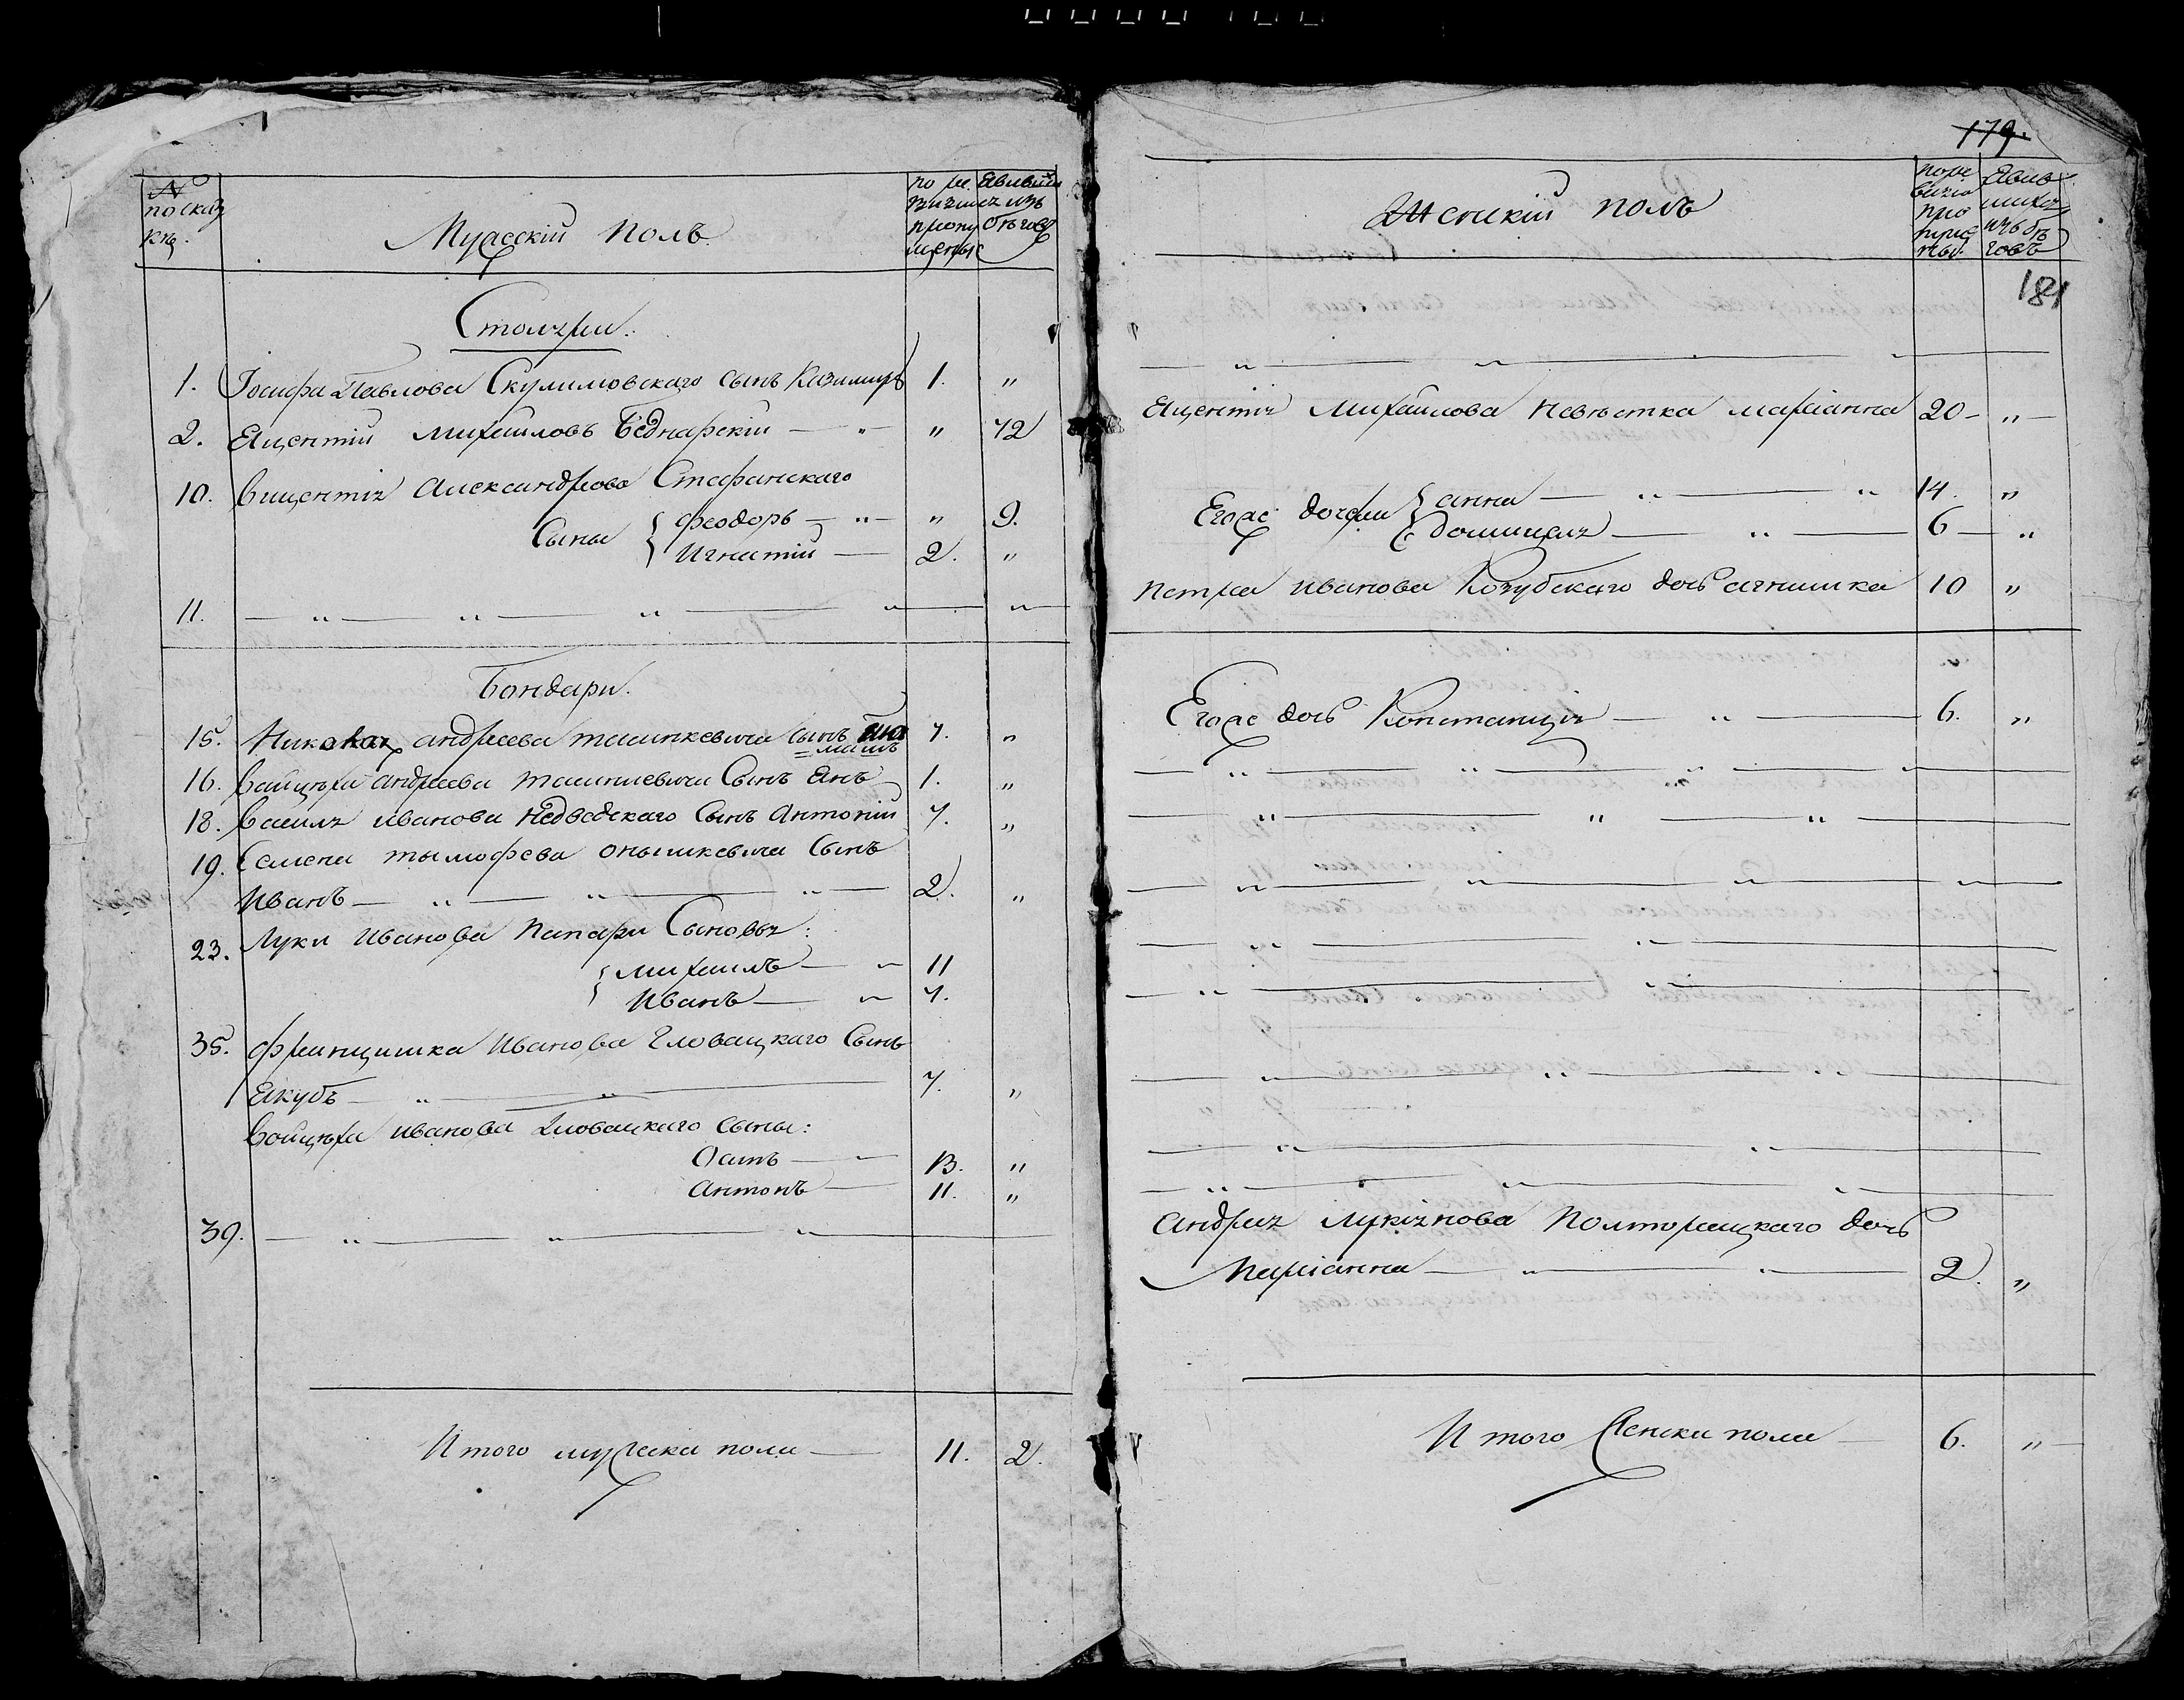 №
по сказ
кѣ.
Мужескій полъ
по ре
визіи
пропу
щены
Явивши
хся изъ
бѣговъ
Столяри:
1. Іосифа Павлова Скулимовскаго сынъ Казимиръ 1. "
2. Яцентій Михайловъ Беднарскій — " — " 42
10. Вицентія Александрова Стефанскаго
Сыны { Феодоръ — " — " 9.
Игнатій — 2. "
11. — " — " — " — " — "
Бондари.
15. Николая Андреева Ташкевича сынъ
16. Войцеха Андреева Сынъ Янъ 1. "
18. Василя Иванова Недведскаго Сынъ Антоній 7. "
19. Семена Тымофеева Онышкевича Сынъ
Иванъ — " — " — " — 2. "
23. Луки Иванова Папари Сыновья:
{ Михаилъ — " 11
Иванъ — " 7.
35. Францишка Иванова Гловацкаго Сынъ
Якубъ — " — " — 7. "
Войцеха Иванова Гловацкаго Сыны:
Осипъ — " 13. "
Антонъ — 11. "
39. — " — " — " —
Итого мужеска пола — 11. 2.
179.
Женскій полъ
поре
визіи
про
пуще
ны.
Явив
шихся
изъ бѣ
говъ
181
— " — " — " — " —
Яцентія Михайлова Невѣстка Маріанна 20 — " —
Егожъ дочери { Анна — " — " 14. "
Домицеля — " — 6 — "
Петра Иванова Козубскаго дочь Агнишка 10 "
Егожъ дочь Констанція — " — 6. "
— " — " — " — " —
— " — " — " —
— " — " — " — " —
— " — " —
— " — " —
— " — " —
— " — " —
— " — " — " —
Андрея Лукіянова Полторацкаго дочь
Маріанна — " — " — 2. "
Итого Женска пола — 6. " —